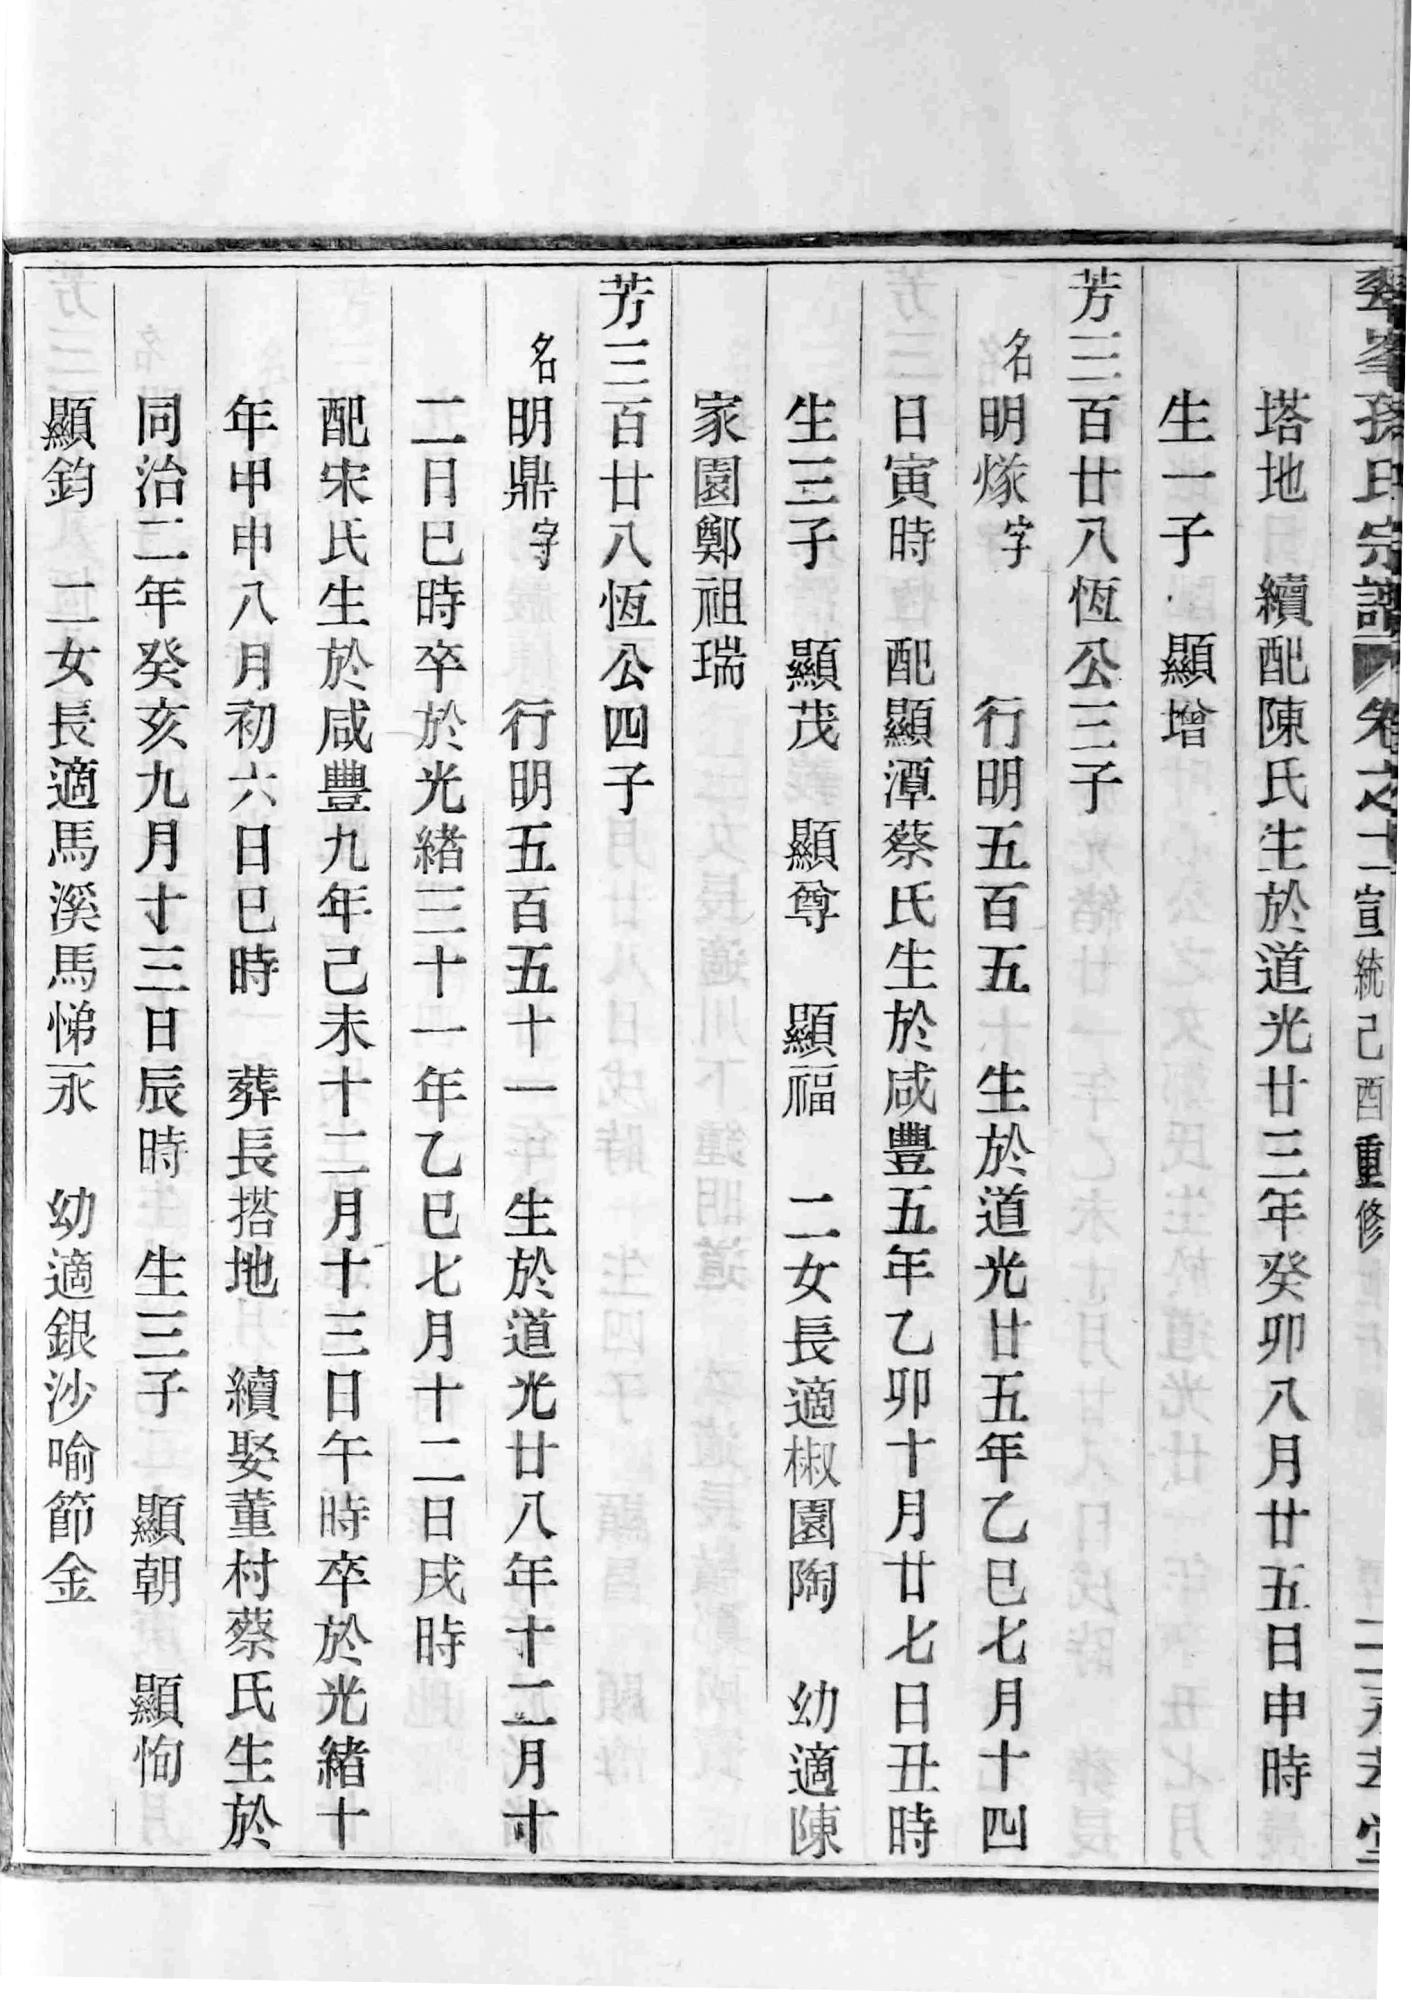 峯孫氏宗譜 卷之十二 宣統己酉重修
塔地 續配陳氏生於道光廿三年癸卯八月廿五日申時
生一子 顯增
芳三百廿八恆公三子
名明燧字 行明五百五十 生於道光廿五年乙巳七月十四
日寅時 配顯潭蔡氏生於咸豐五年乙卯十月廿七日丑時
生三子 顯茂 顯尊 顯福 二女長適椒園陶 幼適陳
家園鄭祖瑞
芳三百廿八恆公四子
名明鼎字 行明五百五十一 生於道光廿八年十二月十
二日巳時卒於光緒三十一年乙巳七月十二日戌時
配宋氏生於咸豐九年己未十二月十三日午時卒於光緒十
年甲申八月初六日巳時 葬長搭地 續娶董村蔡氏生於
同治二年癸亥九月十三日辰時 生三子 顯朝 顯恂
顯鈞 二女長適馬溪馬悌永 幼適銀沙喻節金